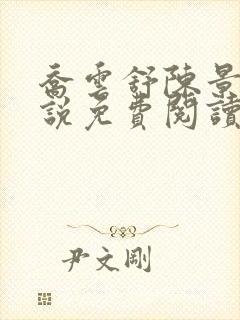 喬雲舒陳景
說免費閱讀
尹文剛